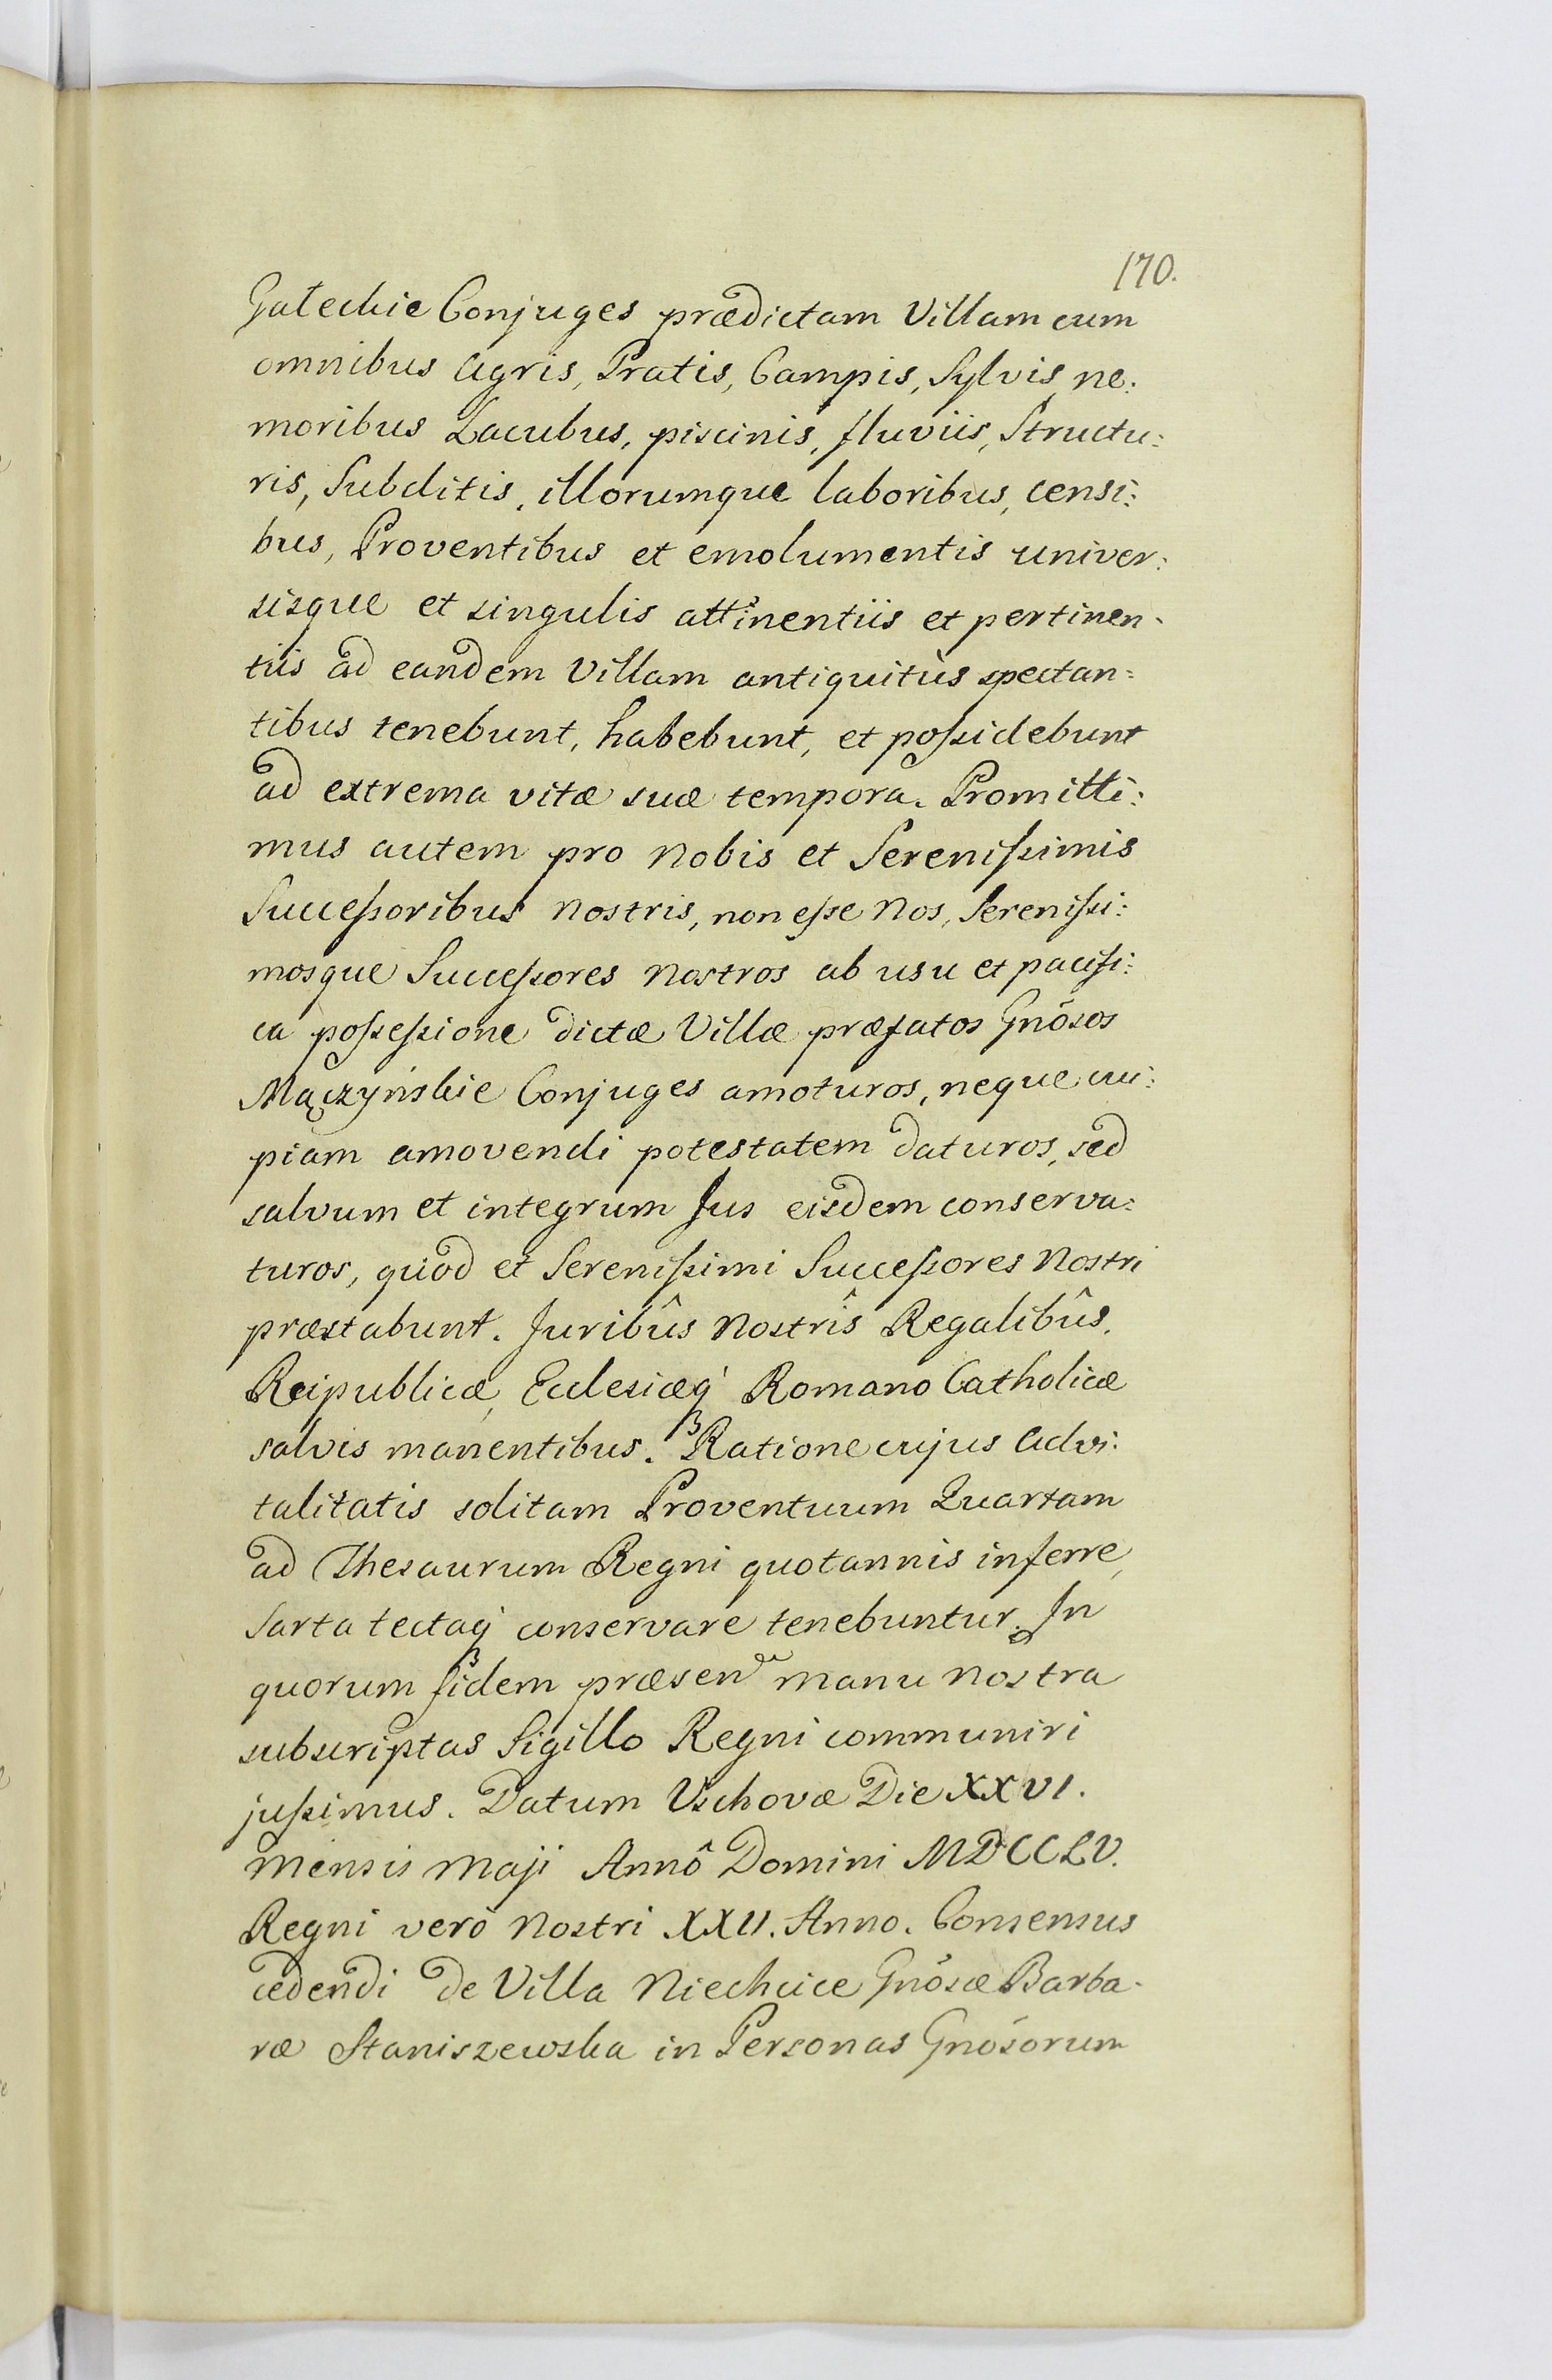 170.
Gałeckie Conjuges prædictam Villam cum
omnibus Agris, Pratis, Campis, Sylvis, ne:
moribus Lacubus, piscinis, fluviis, Structu:
ris, Subditis, illorumque laboribus, censi:
bus, Proventibus et emolumentis univer:
sisque et singulis attinentiis et pertinen-
tiis ad eandem Villam antiquitùs spectan=
tibus tenebunt, habebunt, et possidebunt
ad extrema vitæ suæ tempora. Promitti:
mus autem pro Nobis et Serenissimis
Successoribus Nostris, non esse Nos, Serenissi:
mosque Successores Nostros ab usu et pacifi:
ca possessione dictæ Villæ præfatos Gnõsos
Mączyńskie Conjuges amoturos, neque cui:
piam amovendi potestatem daturos, sed
salvum et integrum Jus eisdem conserva:
turos, quod et Serenissimi Successores Nostri
præstabunt. Juribûs Nostrîs Regalibûs,
Reipublicæ, Ecclesiæq́ Romano Catholicæ
salvis manentibus. Ratione cujus Advi:
talitatis solitam Proventuum Quartam
ad Thesaurum Regni quotannis inferre,
Sarta tectaq́ conservare tenebuntur. In
quorum fidem præsen manu Nostra
subscriptas Sigillo Regni communiri
jussimus. Datum Vschovæ Die XXVI.
Mensis Maji Annô Domini MDCCLV.
Regni verò Nostri XXII. Anno. Consensus
cedendi de Villa Niechcice Gnõsæ Barba-
ræ Staniszewska in Personas Gnõsorum